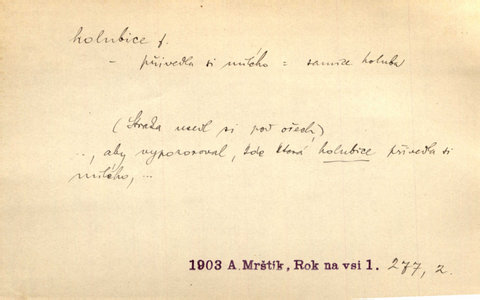 holubice f.
- přivedla si milého = samice holuba
(Straka usedl si pod ořech,)
.., aby vypozoroval, kde která holubice přivedla si
milého, ...
1903 A. Mrštík, Rok na vsi 1. 277, 2.